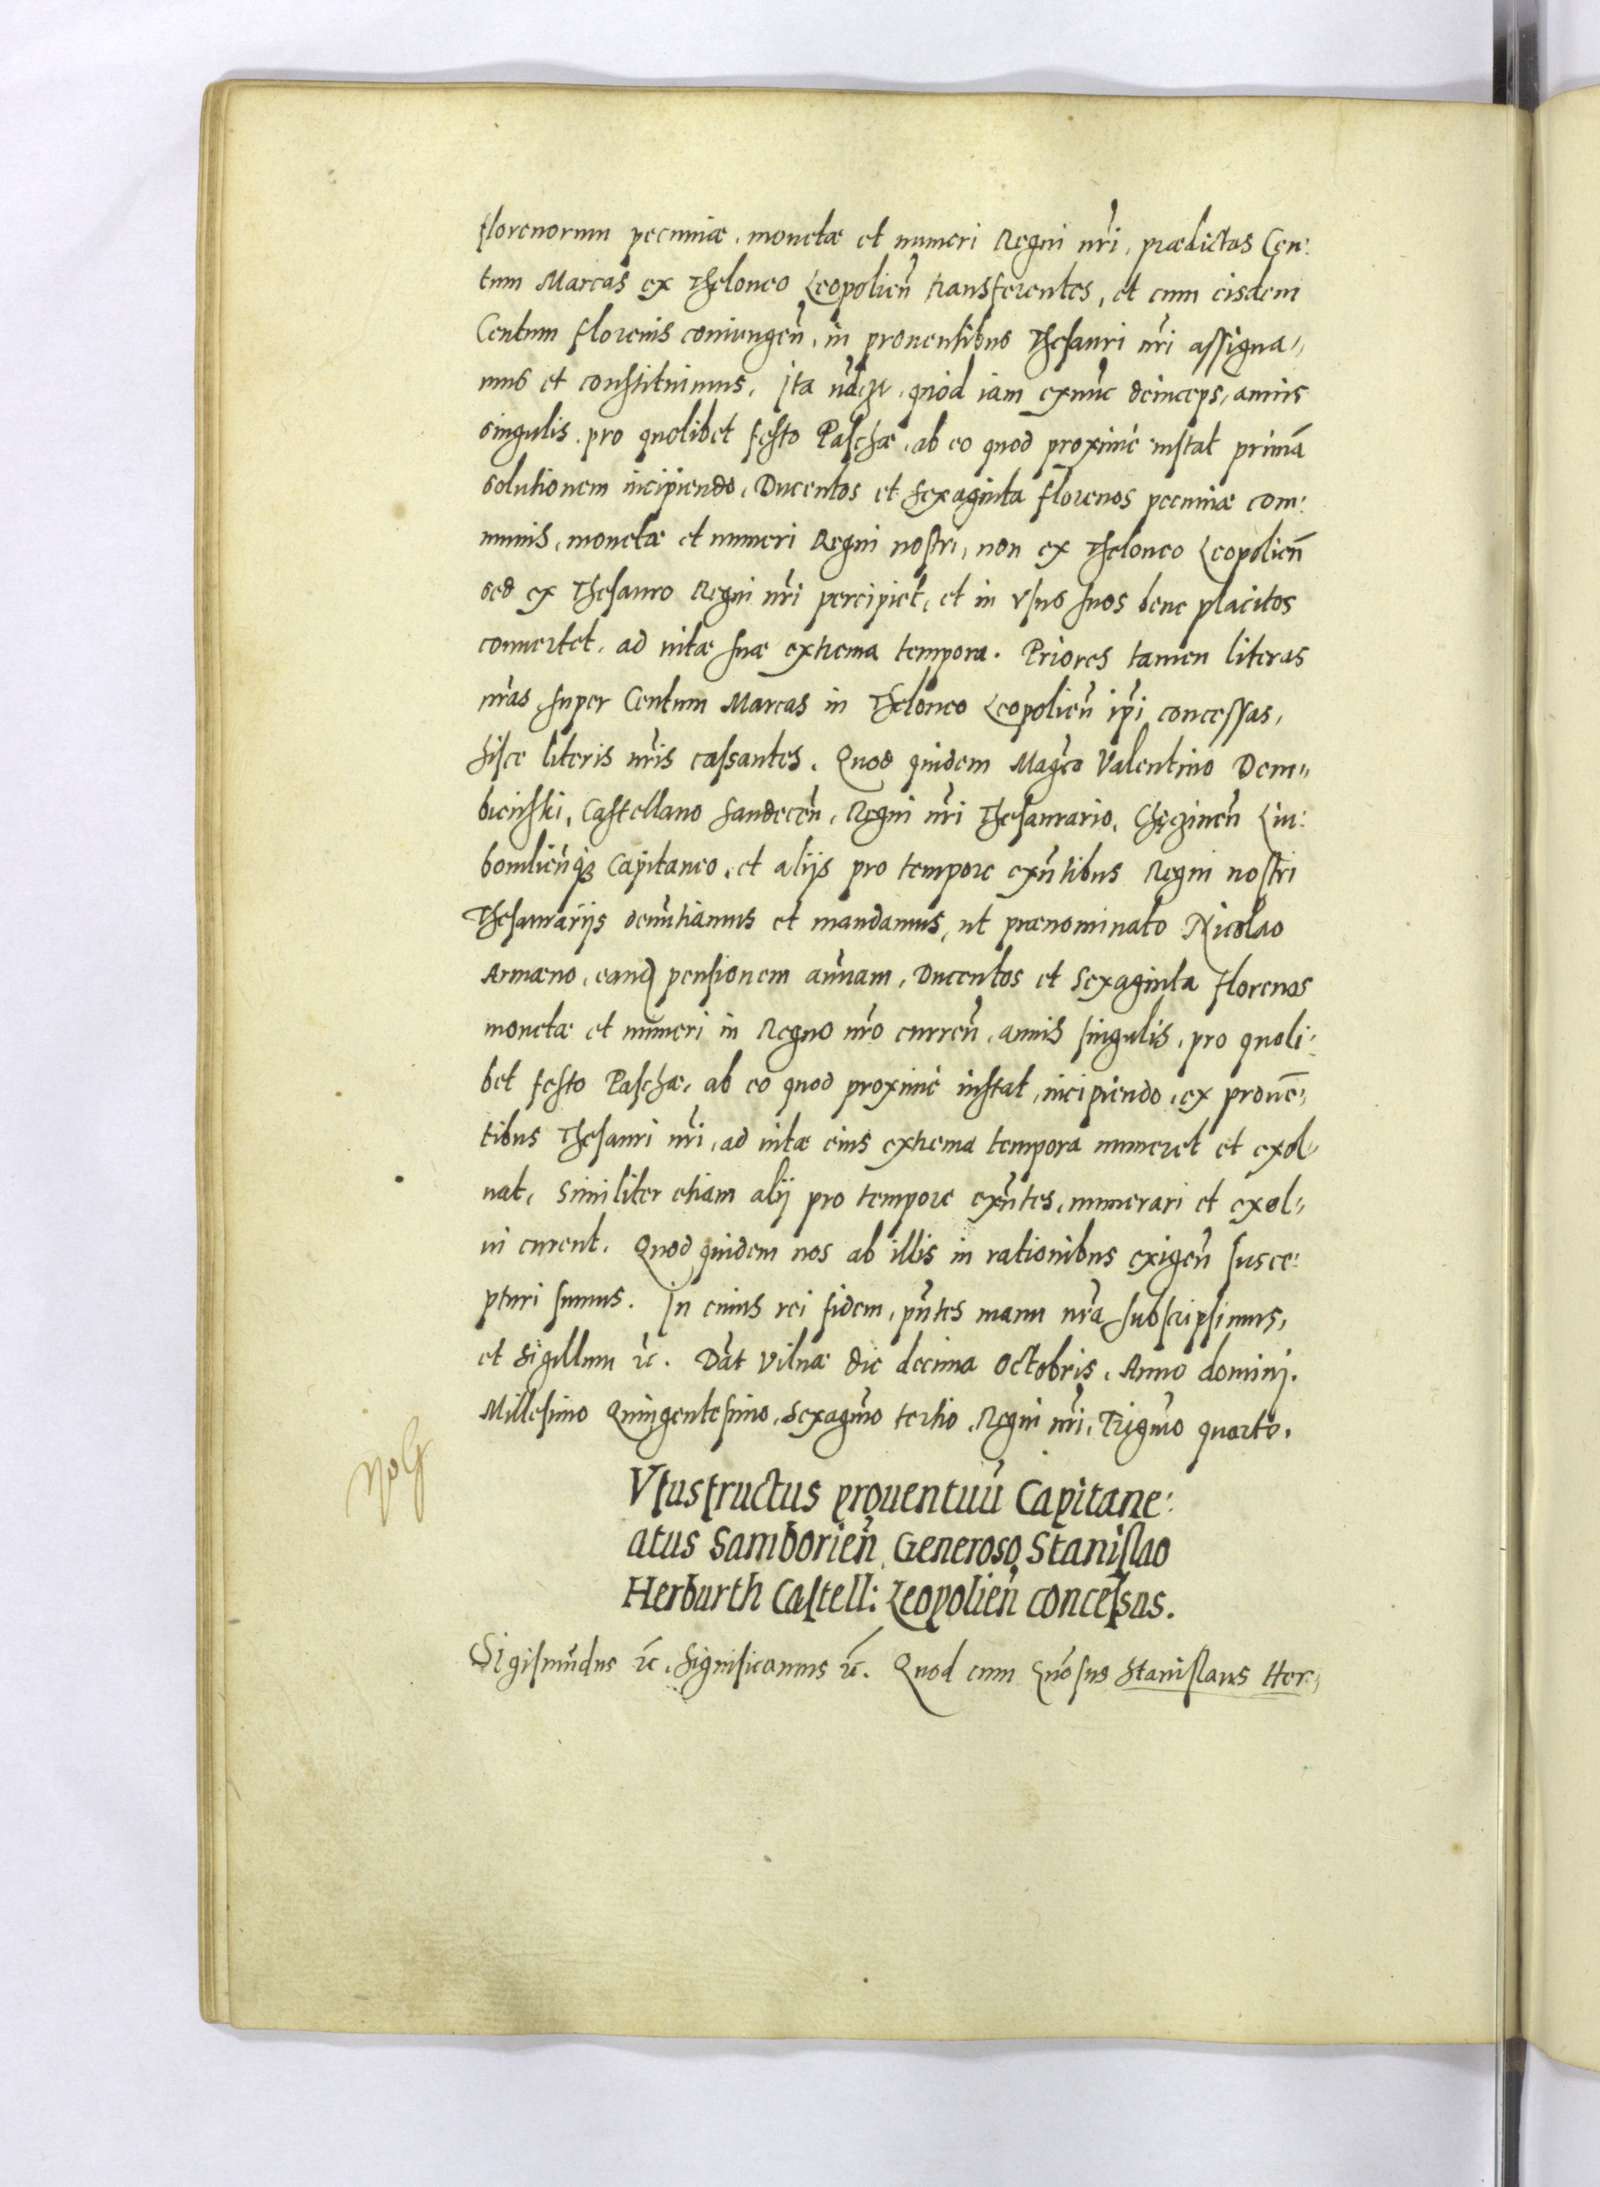 florenorum pecuniæ, monetæ et numeri Regni nri, prædictas Cen:
tum Marcas ex Theloneo Leopolien̄ transferentes, et cum eisdem
Centum florenis coniungen̄, in prouentibus Thesauri nri assigna„
mus et constituimus. Ita vdz, quòd iam exnūc deinceps, annis
singulis, pro quolibet festo Paschæ, ab eo quod proximè instat primā
solutionem incipiendo, Ducentos et sexaginta florenos pecuniæ com:
munis, monetæ et numeri Regni nostri, non ex Theloneo Leopolien̄
sed ex Thesauro Regni nri percipiet, et in vsus suos bene placitos
conuertet, ad vitæ suæ extrema tempora. Priores tamen literas
nras, super Centum Marcas in Theloneo Leopolien̄ ipi concessas,
hisce literis nris cassantes. Quod quidem Magco Valentino Dem„
bienski, Castellano Sandecen̄, Regni nri Thesaurario, Chęczinen̄ Liu:
bomlien̄q3 Capitaneo, et alijs pro tempore exn̄tibus Regni nostri
Thesaurarijs demn̄tiamus et mandamus, ut prænominato Nicolao
Armæno, eand pensionem annuam, Ducentos et Sexaginta florenos
monetæ et numeri in Regno nro curren̄, annis singulis, pro quoli:
bet festo Paschæ, ab eo quod proximè instat, incipiendo, ex prouē„
tibus Thesauri nri, ad vitæ eius extrema tempora numeret et exol„
uat, Similiter etiam alij pro tempore exn̄tes, numerari et exol„
ui curent. Quod quidem nos ab illis in rationibus exigen̄ susce:
pturi sumus. In cuius rei fidem, pn̄tes manu nra subscripsimus,
et Sigillum rc̄. Dat Vilnæ die decima Octobris, Anno domini.
Millesimo Quingentesimo, Sexagmo tertio, Regni nri, Trigmo quarto.
Vsusfructus prouentuū Capitane:
atus Samborien̄, Generoso, Stanislao
Herburth Castell: Leopolien̄ concessus.
Sigismūdus rc̄, Significamus rc̄. Quod cum Gnosus Stanislaus Her„